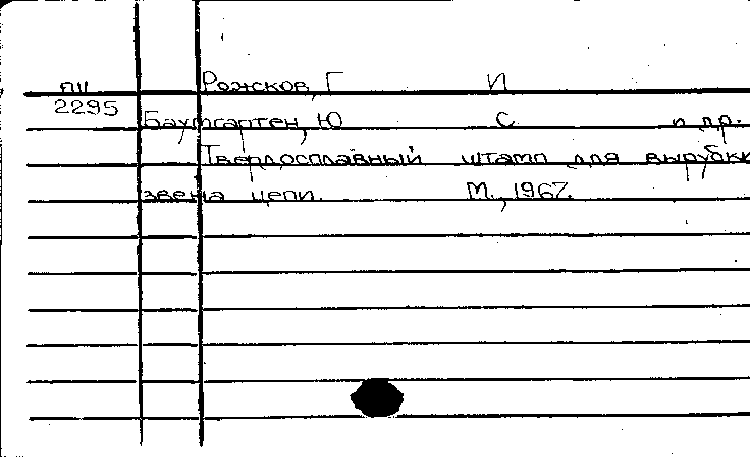 ПII Рожсков, Г И
2295
Баумгартен, Ю С и др.
Твердосплавный штамп для вырубки
звена цепи. М., 1967.